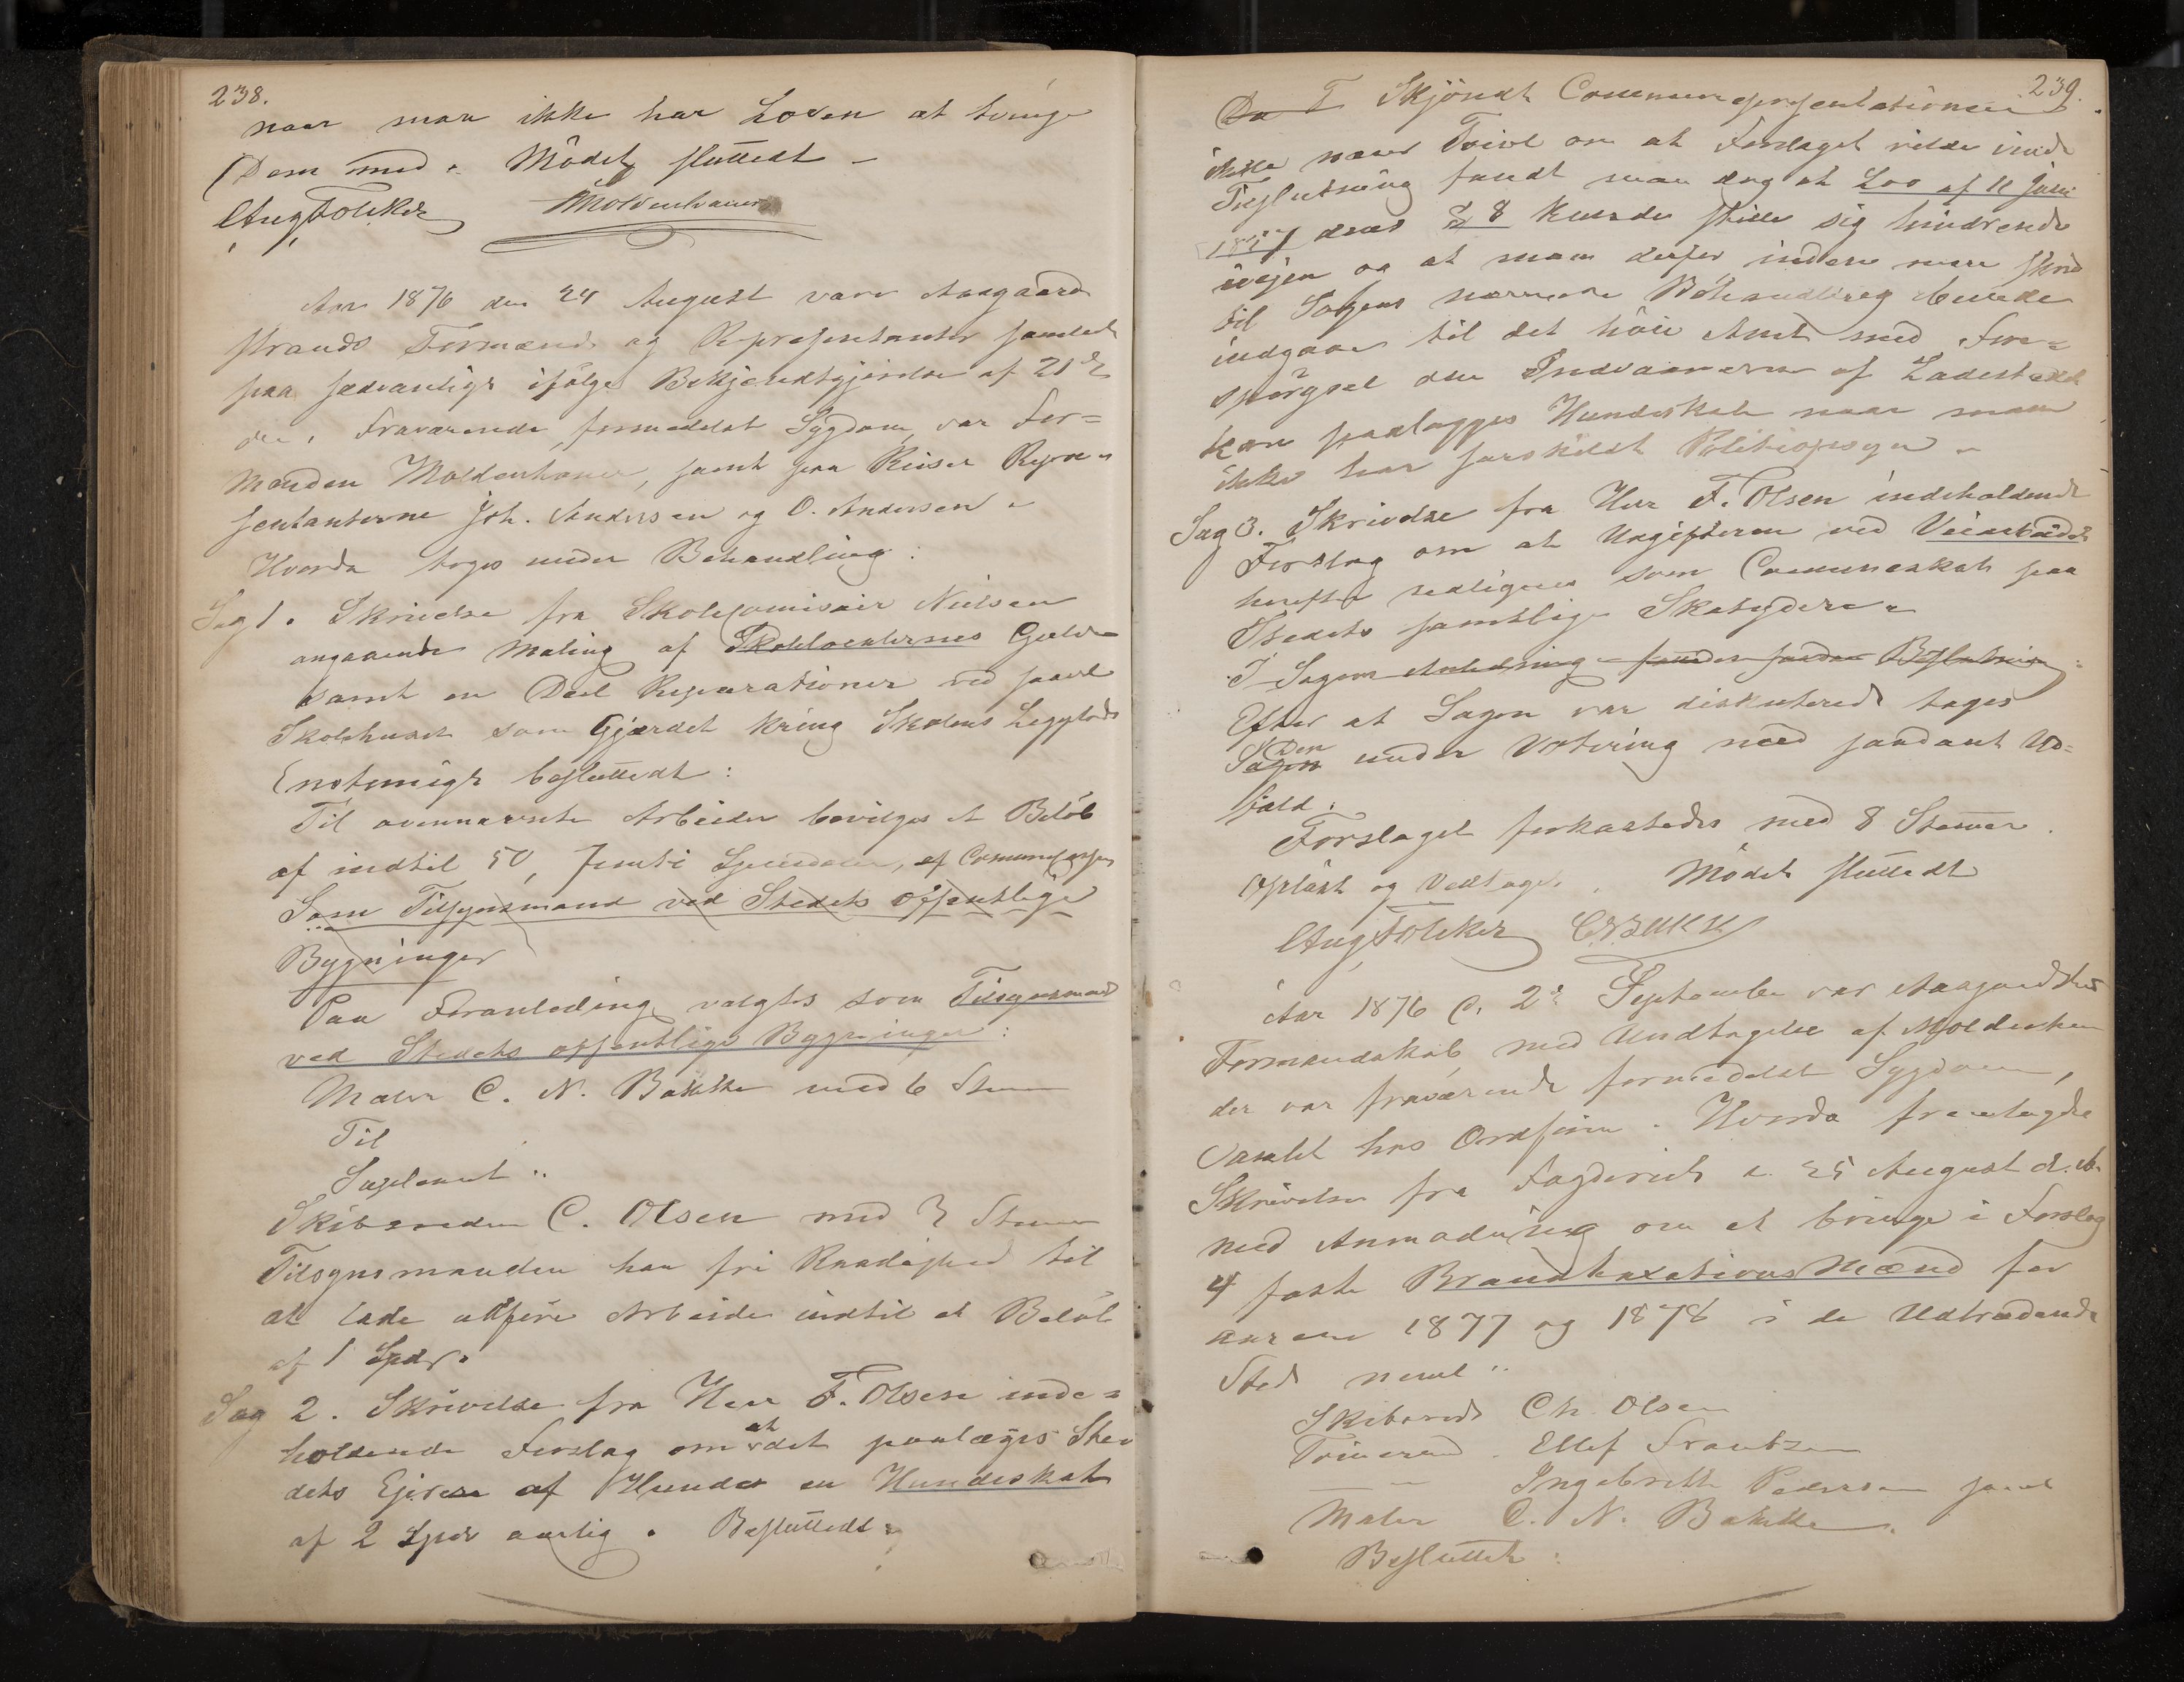 238.
naar man ikke har Loven at tvinge
Dem med. Mødet sluttedt –
Aug Folcker Moldenhauer
Aar 1876 den 24 August vare Aasgaard
strands Formænd og Repræsentanter samlet
paa sædvanligt ifølge Bekjendtgjørelse af 21de
ds. Fraværende formedelst Sygdom var For=
manden Moldenhauer, samt paa Reiser Repræ=
sentanterne Joh. Andersen og O. Andersen.
Hvorda toges under Behandling:
Sag 1. Skrivelse fra Skolecomisair Nielsen
angaaende Maling af Skolelocalernes Gulve
samt en Deel Reparationer ved saavel
Skolehuset som Gjærdet kring Skolens
Enstemigt besluttedt:
Til ovennævnte Arbeider bevilges et Beløb
af indtil 50, femti Speciedaler, af
Som Tilsynsmand ved Stedets offentlige
Bygninger
Paa Foranleding valgtes som Tilsynsmand
ved Stedets offentlige Bygninger:
Maler C. N. Bakke med 6 Stemmer
Til
Suplenant:
Skibsreder C. Olsen med 3 Stemmer
Tilsynsmanden har fri Raadighed til
at lade udføre Arbeide indtil et Beløb
af 1 Spdr.
Sag 2. Skrivelse fra Herr F. Olsen inde=
holdende Forslag om at det paalægges Ste
dets Ejere af Hunder en Hundeskat
af 2 Spdr aarlig. Besluttedt:
239.
Da T Skjøndt Communerepresentationen
ikke nærer Tvivl om at Forslaget vilde vinde
Tilslutning fandt man dog at Lov af 11 Juni
dens § 8 kunde stille sig hindrende
ivejen og at man derfor inden man skred
til Sagens nærmere Behandling burde
indgaa til det høie Amt med Fore=
spørgsel om Indvaanerne af Ladestedet
kan paalægges Hundeskat naar man
ikke har særskildt Politiopsyn –
Sag 3. Skrivelse fra Herr F. Olsen indeholdende
Forslag om at Udgifterne ved Veiarbeidet
herefter udlignes som Communeskat paa
Stedets samtlige Skatydere.
I Sagens Anledning fandes saadan Beslutning:
Efter at Sagen var diskuterede toges
Sagen den under Votering med saadant Ud=
fald:
Forslaget forkastedes med 8 Stemmer.
Oplæst og Vedtaget. Mødet sluttedt
Aug Folcker C N Bakke
Aar 1876 d. 2den September var Aasgaardstrands
Formandskab med Undtagelse af Moldenhauer
der var fraværende formedelst Sygdom,
samlet hos Ordføren. Hvorda fremlagdes
Skrivelse fra Fogderiet a. 25 August d. A.
med Anmodning om at bringe i Forslag
4 faste Brandtaxations Mænd for
aarene 1877 og 1878 i de Udtrædendes
Sted neml:
Skibsreder Ch. Olsen
Tømmermd. Ellef Frantzen
— " — Ingebreth Pedersen samt
Maler C. N. Bakke.
Besluttet: